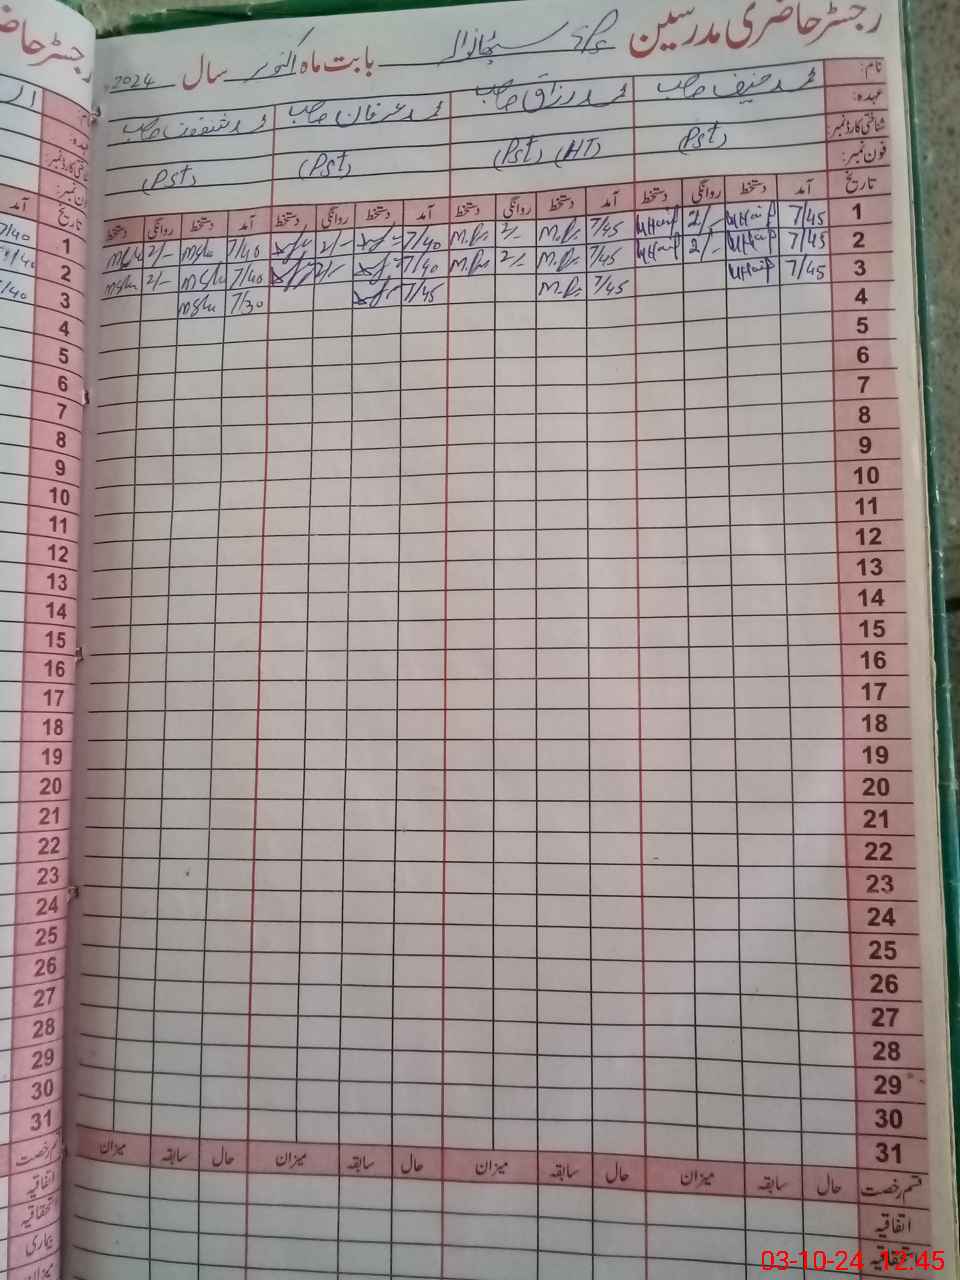 رجسٹر حاضری مدرسین GPS بابت ماہ اکتوبر سال 2024
نام: محمد حنیف صاحب محمد رزاق صاحب محمد عرفان صاحب محمد شفقت صاحب
عہدہ:
شناختی کارڈ نمبر: (Pst) (Pst) (HT) (Pst) (Pst)
فون نمبر:
تاریخ آمد دستخط روانگی دستخط آمد دستخط روانگی دستخط آمد دستخط روانگی دستخط آمد دستخط روانگی دستخط
1 7/45 2/- 7/45 2/- 7/40 2/- 7/40 2/-
2 7/45 2/- 7/45 2/- 7/40 2/- 7/40 2/-
3 7/45 7/45 7/45 7/30
4
5
6
7
8
9
10
11
12
13
14
15
16
17
18
19
20
21
22
23
24
25
26
27
28
29
30
31
قسم رخصت حال سابقہ میزان حال سابقہ میزان حال سابقہ میزان حال سابقہ میزان
اتفاقیہ
استحقاقیہ
03-10-24 12:45
رجسٹر حاضری
آمد تاریخ
7/40 1
7/40 2
7/40 3
4
5
6
7
8
9
10
11
12
13
14
15
16
17
18
19
20
21
22
23
24
25
26
27
28
29
30
31
قسم رخصت
اتفاقیہ
استحقاقیہ
بیماری
میزان